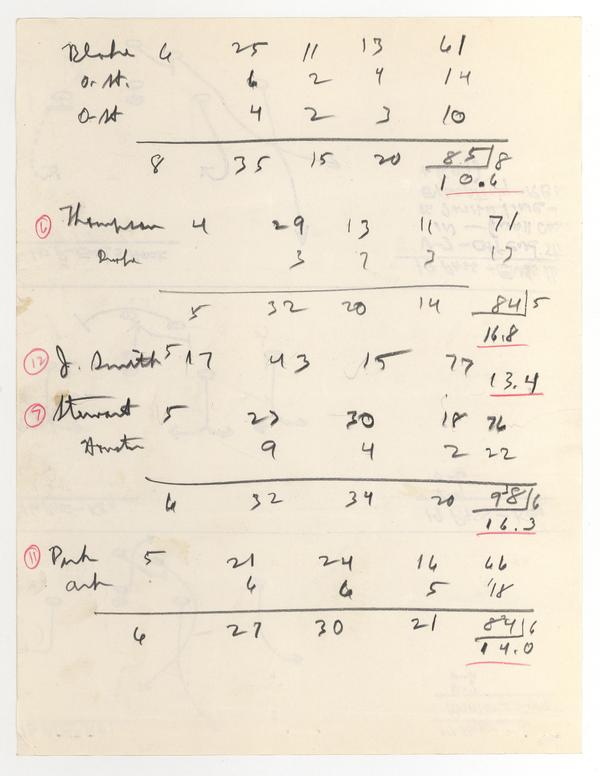 Blake 6 25 11 13 61
O. St. 6 2 4 14
O-St 4 2 3 10
8 35 15 20 85 8
10.6
6 Thompson 4 29 13 11 71
3 7 3 13
5 32 20 14 84 5
16.8
12 J. Smith 5 17 43 15 77
13.4
9 Stewart 5 23 30 18 76
9 4 2 22
6 32 34 20 98 6
16.3
11 5 21 24 16 66
6 6 5 18
6 27 30 21 84 6
14.0